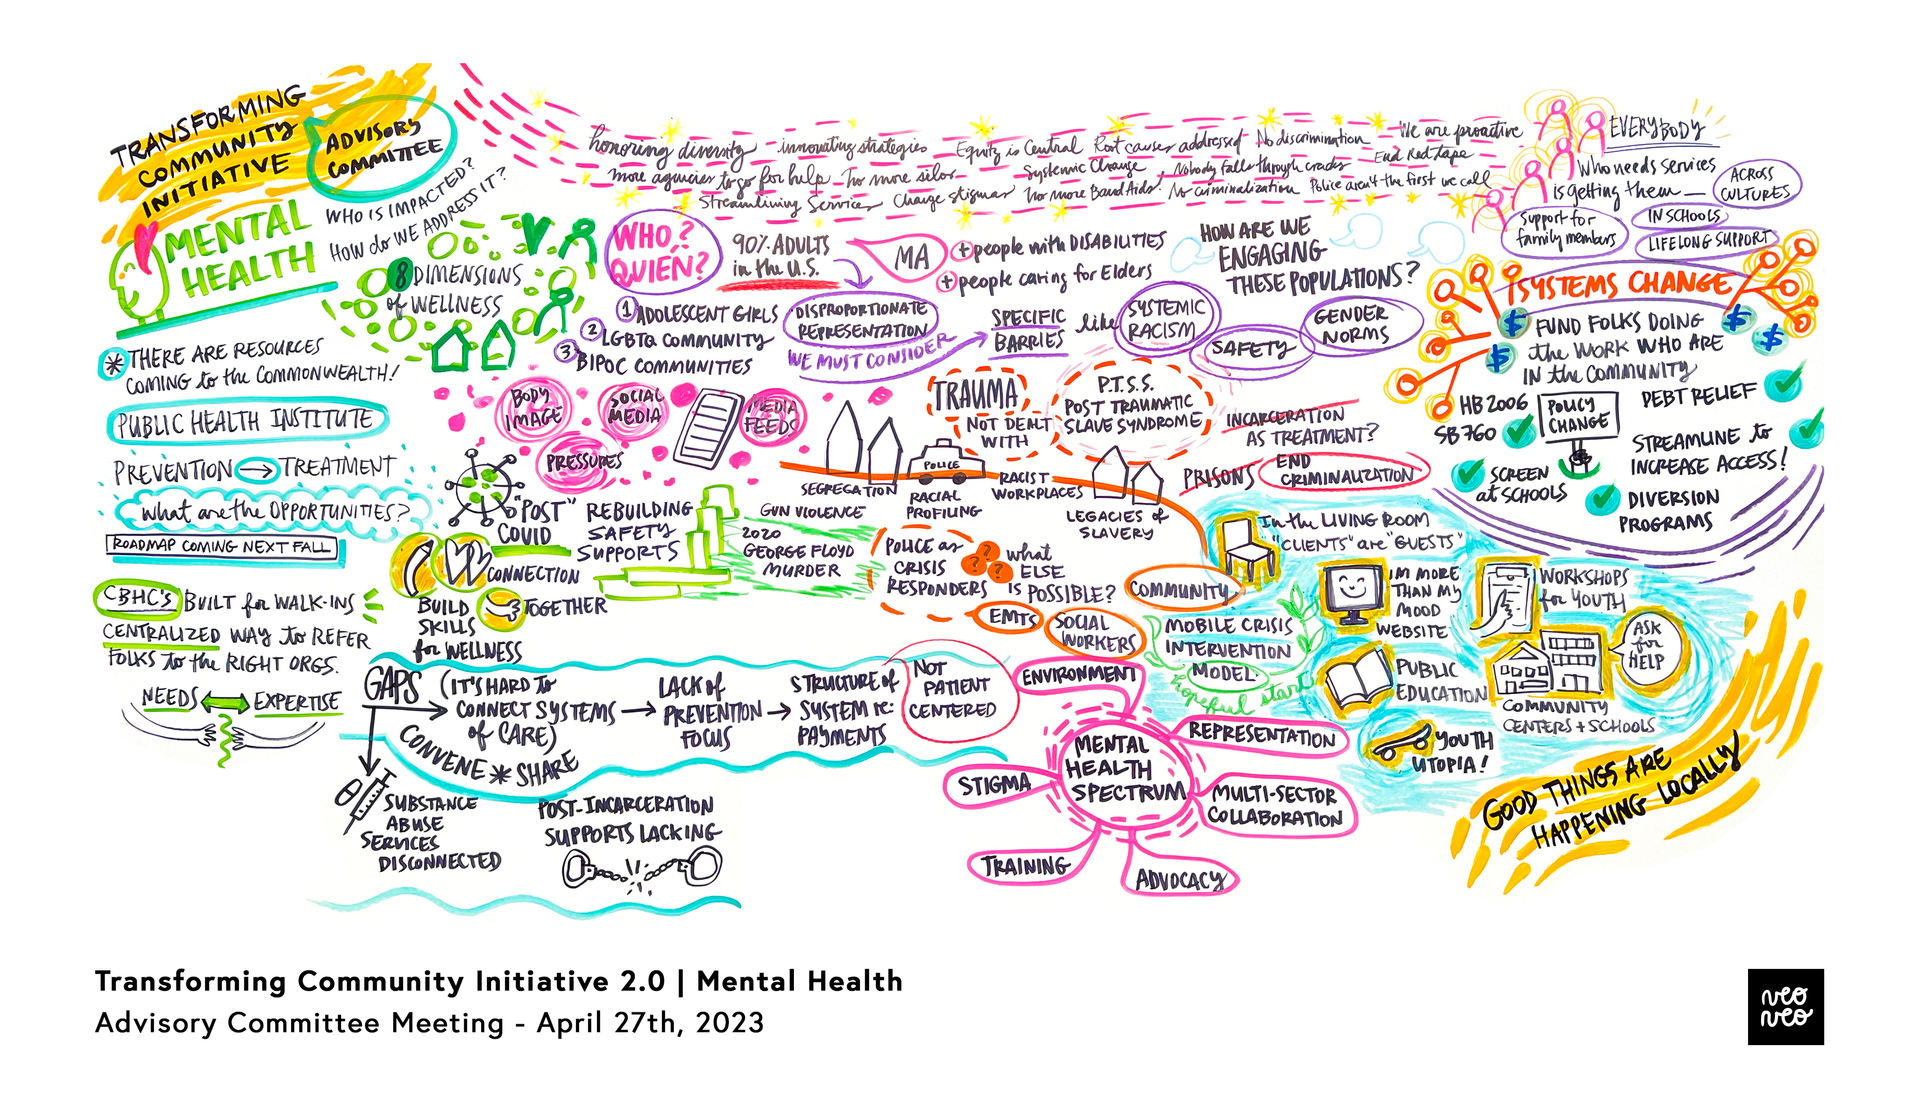 TRANSFORMING
COMMUNITY
INITIATIVE
ADVISORY
COMMITTEE
MENTAL
HEALTH
WHO IS IMPACTED?
HOW do WE ADDRESS IT?
8 DIMENSIONS
of WELLNESS
* THERE ARE RESOURCES
COMING to the COMMONWEALTH!
PUBLIC HEALTH INSTITUTE
PREVENTION → TREATMENT
What are the OPPORTUNITIES?
ROADMAP COMING NEXT FALL
CBHC's BUILT for WALK-INS
CENTRALIZED WAY to REFER
FOLKS to the RIGHT ORGS.
NEEDS ↔ EXPERTISE
honoring diversity
innovating strategies
Equity is Central
Root causes addressed
No discrimination
We are proactive
more agencies to go for help
No more silos
Systemic Change
Nobody falls through cracks
End Red tape
Streamlining Services
Change stigmas
No more Band Aids!
No criminalization
Police aren't the first we call
EVERYBODY
Who needs services
is getting them —
ACROSS
CULTURES
Support for
family members
IN SCHOOLS
LIFELONG SUPPORT
WHO?
QUIEN?
90% ADULTS
in the U.S.
MA
+ people with DISABILITIES
+ people caring for Elders
HOW ARE WE
ENGAGING
THESE POPULATIONS?
1 ADOLESCENT GIRLS
2 LGBTQ COMMUNITY
3 BIPOC COMMUNITIES
DISPROPORTIONATE
REPRESENTATION
WE MUST CONSIDER
SPECIFIC
BARRIES
like
SYSTEMIC
RACISM
SAFETY
GENDER
NORMS
BODY
IMAGE
SOCIAL
MEDIA
MEDIA
FEEDS
PRESSURES
TRAUMA
NOT DEALT
WITH
P.T.S.S.
POST TRAUMATIC
SLAVE SYNDROME
INCARCERATION
AS TREATMENT?
PRISONS
END
CRIMINALIZATION
POLICE
SEGREGATION
RACIAL
PROFILING
RACIST
WORKPLACES
LEGACIES of
SLAVERY
"POST"
COVID
REBUILDING
SAFETY
SUPPORTS
GUN VIOLENCE
2020
GEORGE FLOYD
MURDER
CONNECTION
BUILD
SKILLS
for WELLNESS
TOGETHER
POLICE as
CRISIS
RESPONDERS
? ? ?
what
ELSE
is POSSIBLE?
EMTS
SOCIAL
WORKERS
COMMUNITY
MOBILE CRISIS
INTERVENTION
MODEL
hopeful start
SYSTEMS CHANGE
$ $ $ $
FUND FOLKS DOING
the WORK WHO ARE
IN the COMMUNITY
HB 2006
SB 760
POLICY
CHANGE
DEBT RELIEF
STREAMLINE to
INCREASE ACCESS!
SCREEN
at SCHOOLS
DIVERSION
PROGRAMS
In the LIVING ROOM
"CLIENTS" are "GUESTS"
I'M MORE
THAN MY
MOOD
WEBSITE
WORKSHOPS
for YOUTH
ASK
for
HELP
PUBLIC
EDUCATION
COMMUNITY
CENTERS + SCHOOLS
YOUTH
UTOPIA!
GOOD THINGS ARE
HAPPENING LOCALLY
GAPS
(IT'S HARD to
CONNECT SYSTEMS
of CARE)
LACK of
PREVENTION
FOCUS
STRUCTURE of
SYSTEM re:
PAYMENTS
NOT
PATIENT
CENTERED
CONVENE * SHARE
SUBSTANCE
ABUSE
SERVICES
DISCONNECTED
POST-INCARCERATION
SUPPORTS LACKING
MENTAL
HEALTH
SPECTRUM
ENVIRONMENT
REPRESENTATION
STIGMA
MULTI-SECTOR
COLLABORATION
TRAINING
ADVOCACY
Transforming Community Initiative 2.0 | Mental Health
Advisory Committee Meeting - April 27th, 2023
neo
neo